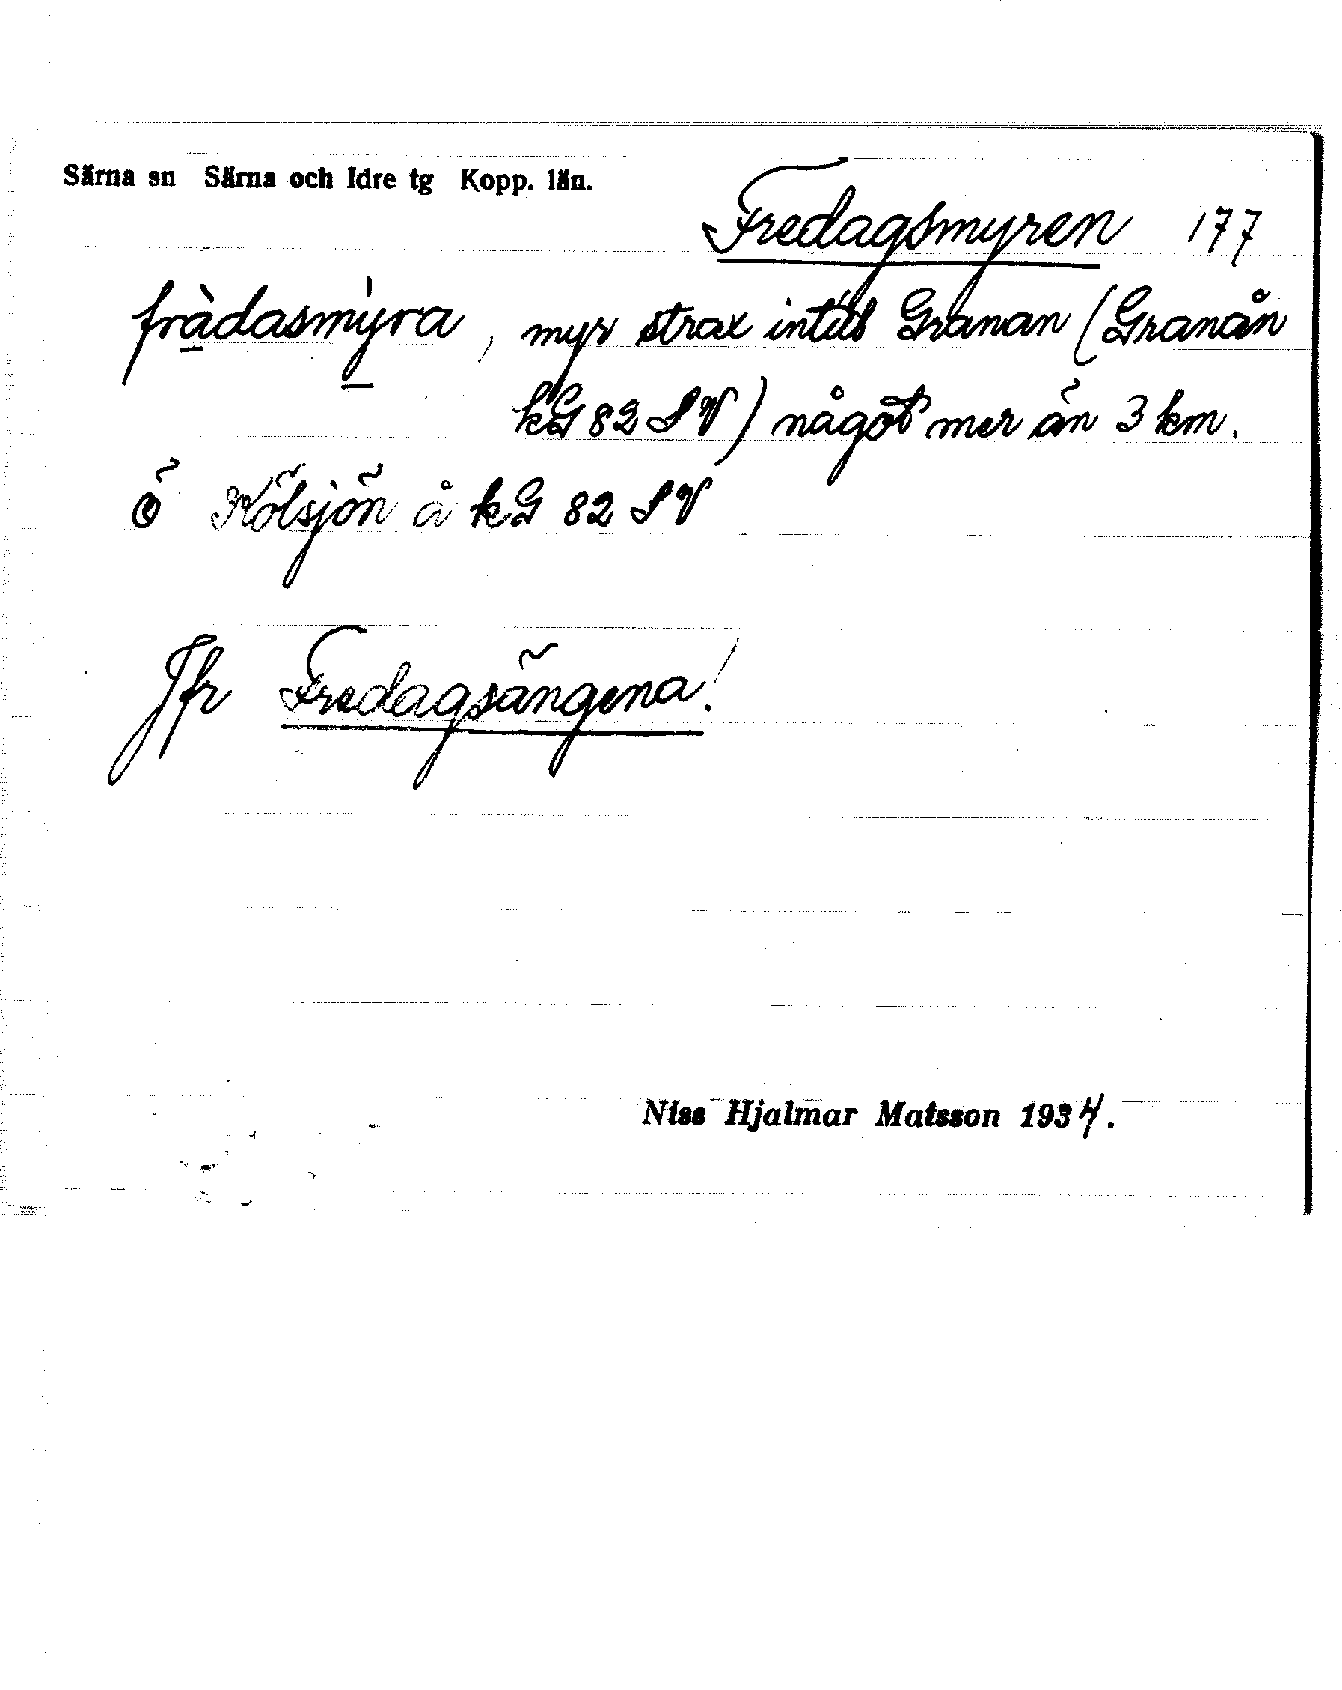 Särna sn Särna och Idre tg Kopp. län.
Fredagsmyren 177
fràdasmỳra, myr strax intill Granan (Granån
kG 82 SV) något mer än 3 km.
ö Kölsjön å kG 82 SV
Jfr Fredagsängena!
Niss Hjalmar Matsson 1934.